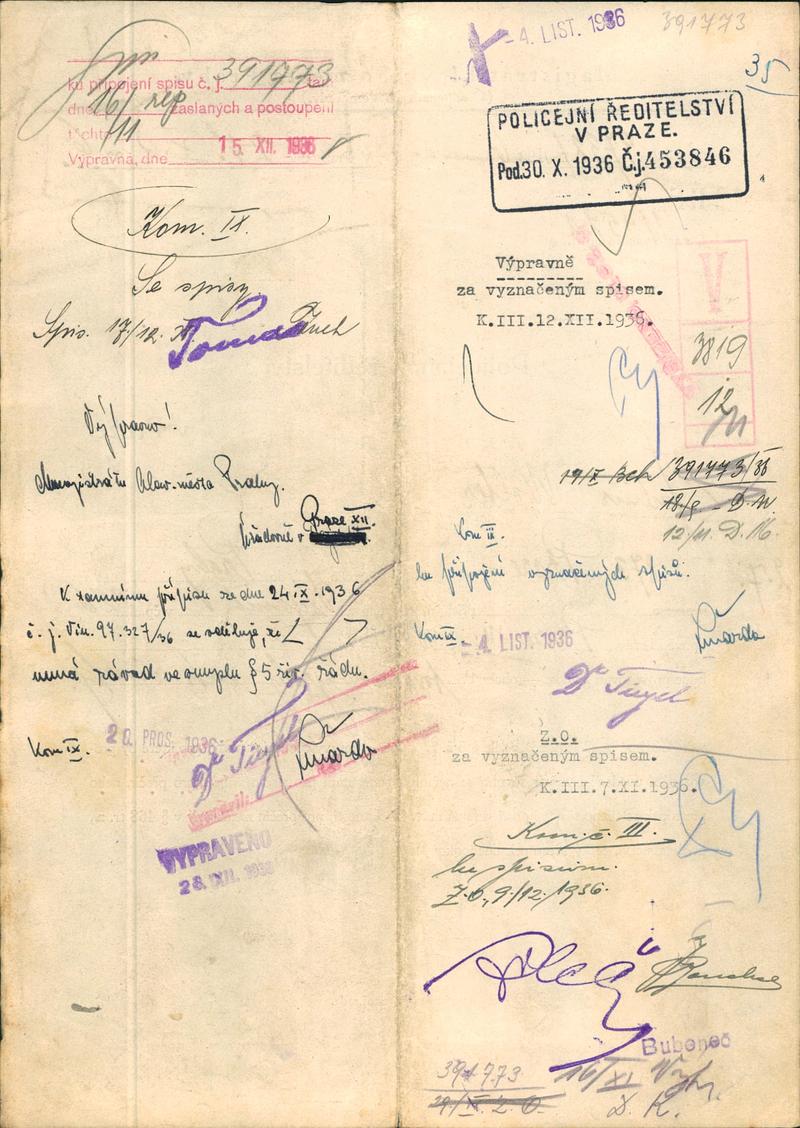 ku připojení spisu č. j. 391773
dne 16/ rep zaslaných a postoupení
těchto 11
Výpravna, dne 15. XII. 1936
Kom. IX.
Se spisy
Spis. 17/12.
Tomas
Výpravno!
Magistrátu hlav. města Prahy.
Úřadovně v Praze XII.
K tamnímu přípisu ze dne 24 IX. 1936
č. j. Vin. 97.327/36 se sděluje, že
nemá závad ve smyslu § 5 živ. řádu.
Kom IX.
20 PROS. 1936
Dr Tingl
VYPRAVENO
28. 1936
- 4. LIST. 1936
391773
35
POLICEJNÍ ŘEDITELSTVÍ
V PRAZE.
Pod. 30. X. 1936 Č.j. 453846
Výpravně
za vyznačeným spisem.
K.III.12.XII.1936.
V
3819
12
19/X 391773/36
18/9
12/11. D. K.
Kom IX.
ku připojení vyznačených spisů.
Kom IX.
- 4. LIST 1936
Dr Tingl
Z.O.
za vyznačeným spisem.
K.III.7.XI.1936.
Kom. č. III.
ke spisům.
Z.O, 9/12/1936.
Bubeneč
391773 16/XI
D. K.